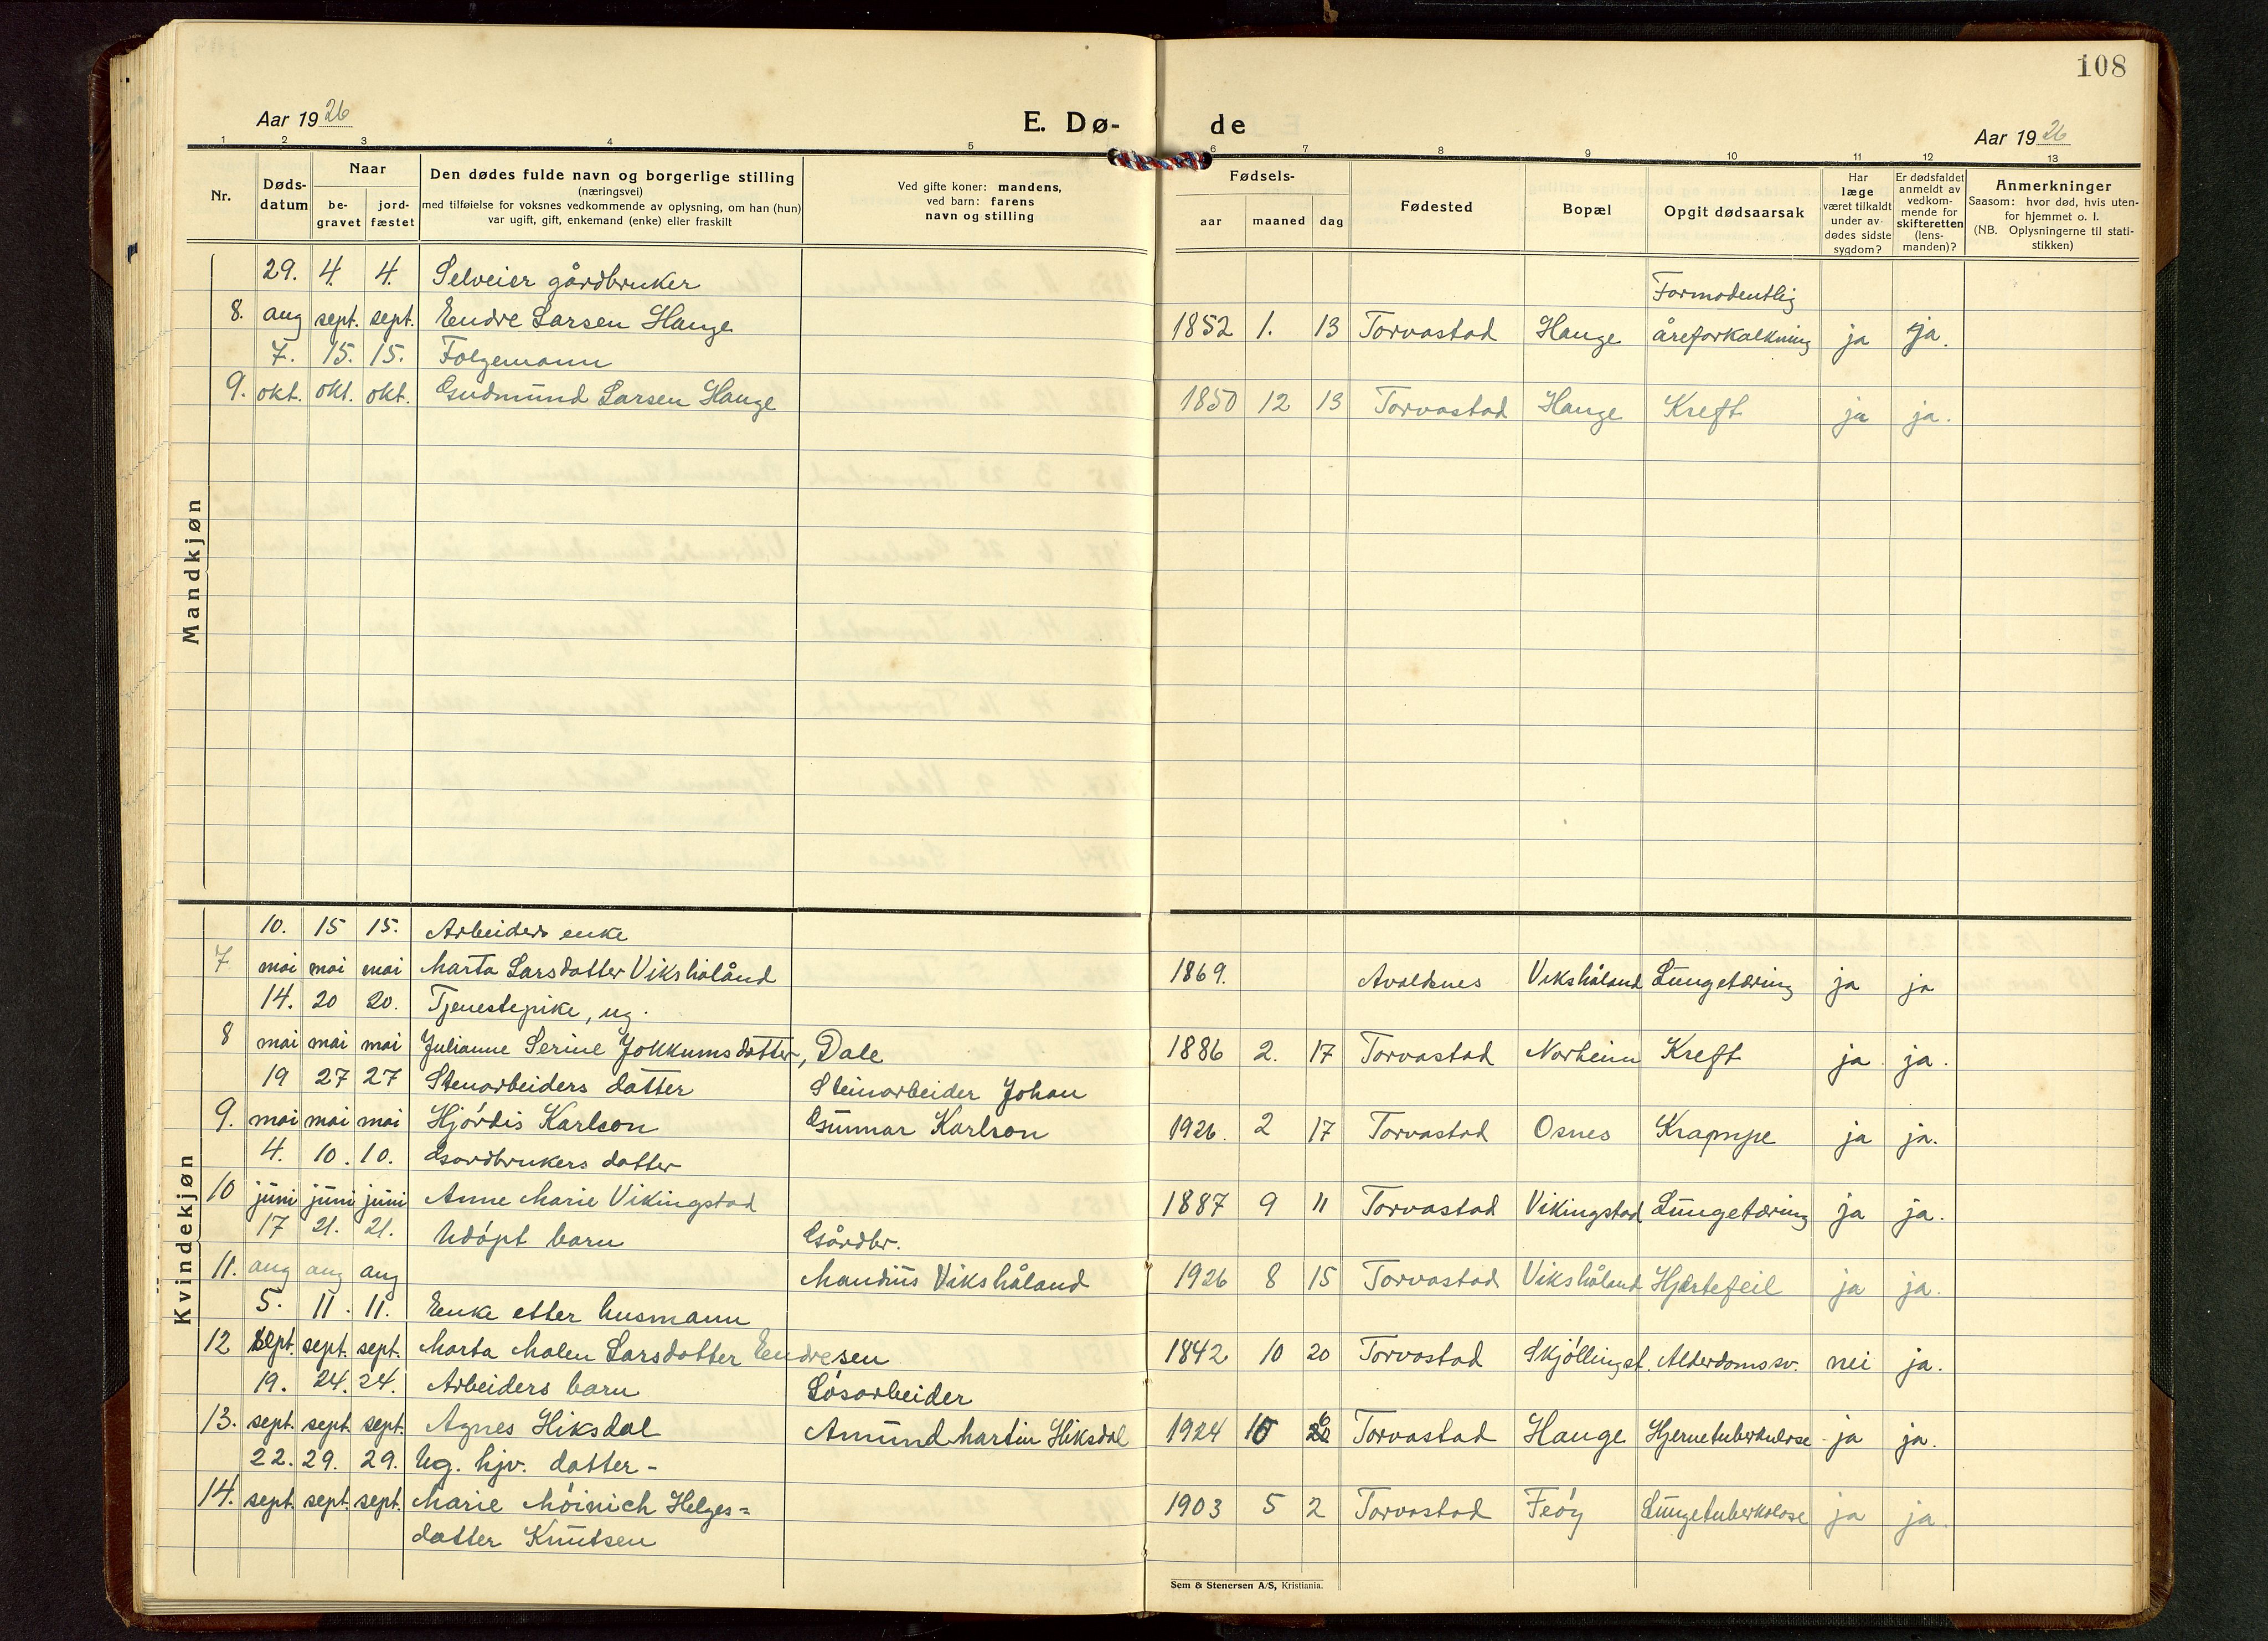 108
Aar 1926
E. Dø-
de
Aar 1926
1 2 3 4 5 6 7 8 9 10 11 12 13
Nr.
Døds-
datum
Naar
be-
gravet
jord-
fæstet
Den dødes fulde navn og borgerlige stilling
(næringsvei)
med tilføielse for voksnes vedkommende av oplysning, om han (hun)
var ugift, gift, enkemand (enke) eller fraskilt
Ved gifte koner: mandens,
ved barn: farens
navn og stilling
Fødsels-
aar
maaned
dag
Fødested
Bopæl
Opgit dødsaarsak
Har
læge
været tilkaldt
under av-
dødes sidste
sygdom?
Er dødsfaldet
anmeldt av
vedkom-
mende for
skifteretten
(lens-
manden)?
Anmerkninger
Saasom: hvor død, hvis uten-
for hjemmet o. l.
(NB. Oplysningerne til stati-
stikken)
Mandkjøn
29. 4. 4. Selveier gårdbruker
Formodentlig
8. aug sept. sept. Endre Larsen Hauge 1852 1. 13 Torvastad Hauge åreforkalkning ja ja.
7. 15. 15. Folgemann
9. okt. okt. okt. Gudmund Larsen Hauge 1850 12 13 Torvastad Hauge Kreft ja ja.
Kvindekjøn
10. 15 15. Arbeiders enke
7 mai mai mai Marta Larsdatter Vikshåland 1869. Avaldsnes Vikshåland Lungetæring ja ja
14. 20 20. Tjenestepike, ug.
8 mai mai mai Julianne Serine Jokkumsdatter, Dale 1886 2. 17 Torvastad Norheim Kreft ja ja.
19 27 27 Stenarbeiders datter Steinarbeider Johan
9. mai mai mai Hjórdis Karlson Gunnar Karlson 1926. 2 17 Torvastad Osnes Krampe ja ja.
4. 10. 10. Gardbrukers datter
10 juni juni juni Anne Marie Vikingstad 1887 9 11 Torvastad Vikingstad Lungetæring ja ja.
17 21. 21. Udópt barn Gårdbr.
11. aug aug aug Mandius Vikshåland 1926 8 15 Torvastad Vikshåland Hjertefeil ja ja.
5. 11. 11. Enke etter husmann
12 sept. sept. sept. Marta Malen Larsdatter Endresen 1842 10 20 Torvastad Skjóllingst. Alderdomssv. nei ja.
19. 24. 24. Arbeiders barn Lósarbeider
13. sept. sept. sept. Agnes Hiksdal Amund Martin Hiksdal 1924 10 Torvastad Hauge Hjernetuberkulose ja ja.
22. 29. 29. Ug. hjv. datter -
14. sept. sept. sept. Marie Móinich Helges= 1903 5 2 Torvastad Feóy Lungetuberkolose ja ja.
datter Knutsen
Sem & Stenersen A/S, Kristiania.